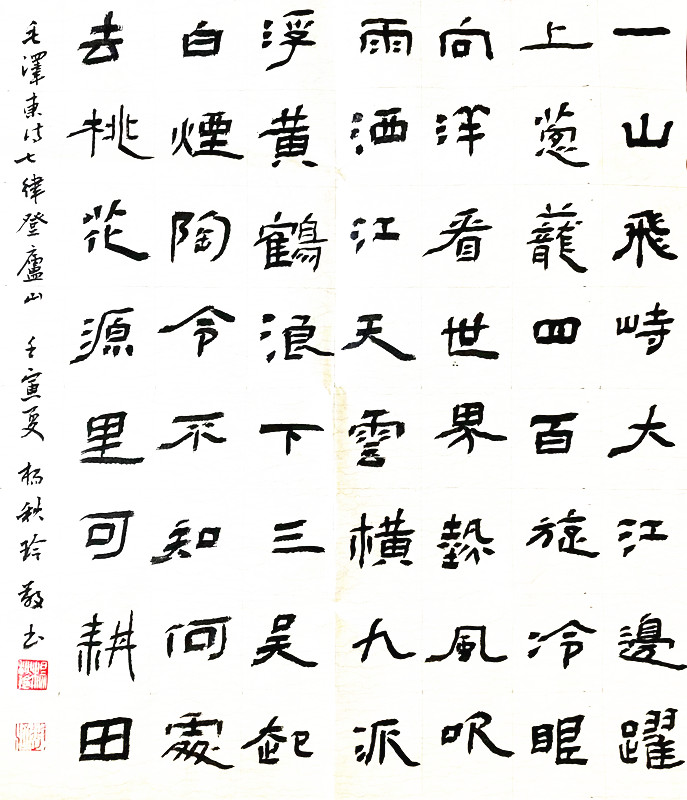 一山飛峙大江邊躍
上葱蘢四百旋冷眼
向洋看世界熱風吹
雨洒江天雲橫九派
浮黃鶴浪下三吳起
白煙陶令不知何處
去桃花源里可耕田
毛澤東诗七律登廬山 壬寅夏 杨秋玲敬书